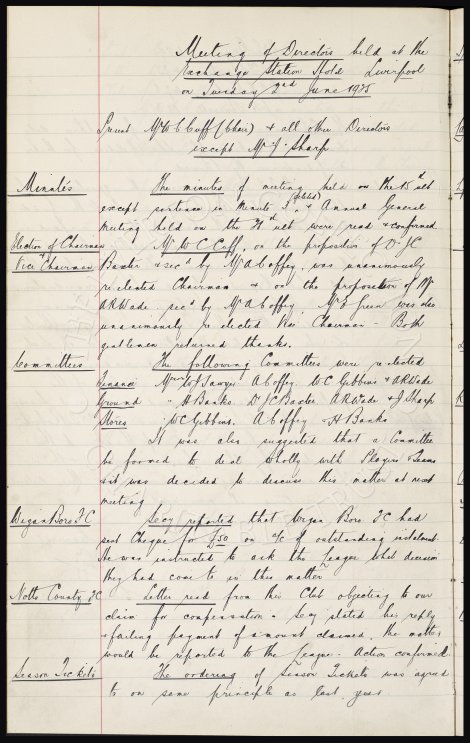 Meeting of Directors held at the
Exchange Station Hotel Liverpool
on Tuesday 2nd June 1925
Present Mr W C Cuff (Chair) & all other Directors
except Mr J Sharp
Minutes The minutes of meeting held on the ult
except sentence in Minute (deleted) & Annual General
Meeting held on the ult were read & confirmed.
Election of Chairman Mr W C Cuff, on the proposition of Dr J C
Vice Chairman Baxter & secd by Mr A Coffey, was unanimously
re-elected Chairman & on the proposition of Mr
A R Wade secd by Mr A Coffey, Mr E Green was also
unanimously re-elected Vice Chairman - Both
gentlemen returned thanks.
Committees The following Committees were re-elected
Finance Messrs W J Sawyer A Coffey W C Gibbins & A R Wade
Ground " H Banks Dr J C Baxter A R Wade & J Sharp
Stores " W C Gibbins. A Coffey & H Banks
It was also suggested that a Committee
be formed to deal wholly with Players & Teams
& it was decided to discuss this matter at next
meeting
Wigan Boro F C Secy reported that Wigan Boro F C had
sent Cheque for £50 on a/c of outstanding instalment.
He was instructed to ask the League what decision
they had come to in this matter
Notts County F C Letter read from this Club objecting to our
claim for compensation & Secy stated his reply
& failing payment of amount claimed, the matter
would be reported to the League - Action confirmed.
Season Tickets The ordering of Season Tickets was agreed
to on same principle as last year